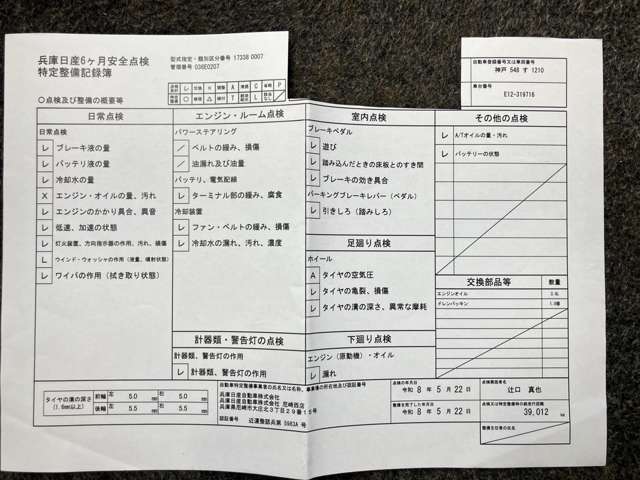 兵庫日産6ヶ月安全点検
特定整備記録簿
型式指定・類別区分番号 17338 0007
管理番号 036E0207
自動車登録番号又は車両番号
神戸 548 す 1210
車台番号
E12-319716
○点検及び整備の概要等
日常点検
エンジン・ルーム点検
室内点検
その他の点検
日常点検
レ ブレーキ液の量
レ バッテリ液の量
レ 冷却水の量
X エンジン・オイルの量、汚れ
レ エンジンのかかり具合、異音
レ 低速、加速の状態
レ 灯火装置、方向指示器の作用、汚れ、損傷
レ ウインド・ウォッシャの作用（液量、噴射状態）
レ ワイパの作用（拭き取り状態）
パワーステアリング
／ ベルトの緩み、損傷
／ 油漏れ及び油量
バッテリ、電気配線
レ ターミナル部の緩み、腐食
冷却装置
レ ファン・ベルトの緩み、損傷
レ 冷却水の漏れ、汚れ、濃度
計器類・警告灯の点検
計器類、警告灯の作用
レ 計器類、警告灯の作用
ブレーキペダル
レ 遊び
レ 踏み込んだときの床板とのすき間
レ ブレーキの効き具合
パーキングブレーキレバー（ペダル）
レ 引きしろ（踏みしろ）
足廻り点検
ホイール
A タイヤの空気圧
レ タイヤの亀裂、損傷
レ タイヤの溝の深さ、異常な摩耗
下廻り点検
エンジン（原動機）・オイル
レ 漏れ
レ A/Tオイルの量・汚れ
レ バッテリーの状態
交換部品等 数量
エンジンオイル
ドレンパッキン
タイヤの溝の深さ
(1.6mm以上)
前輪 左 5.0 mm 右 5.0 mm
後輪 左 5.5 mm 右 5.5 mm
自動車特定整備事業者の氏名又は名称、事業場の所在地及び認証番号
兵庫日産自動車株式会社
兵庫日産自動車株式会社 尼崎西店
兵庫県尼崎市大庄北3丁目29番15号
認証番号 近運整認兵第 5983A 号
点検の年月日
令和 8 年 5 月 22 日
整備を完了した年月日
令和 8 年 5 月 22 日
点検実施者名
辻口 真也
39,012 km
整備主任者の氏名